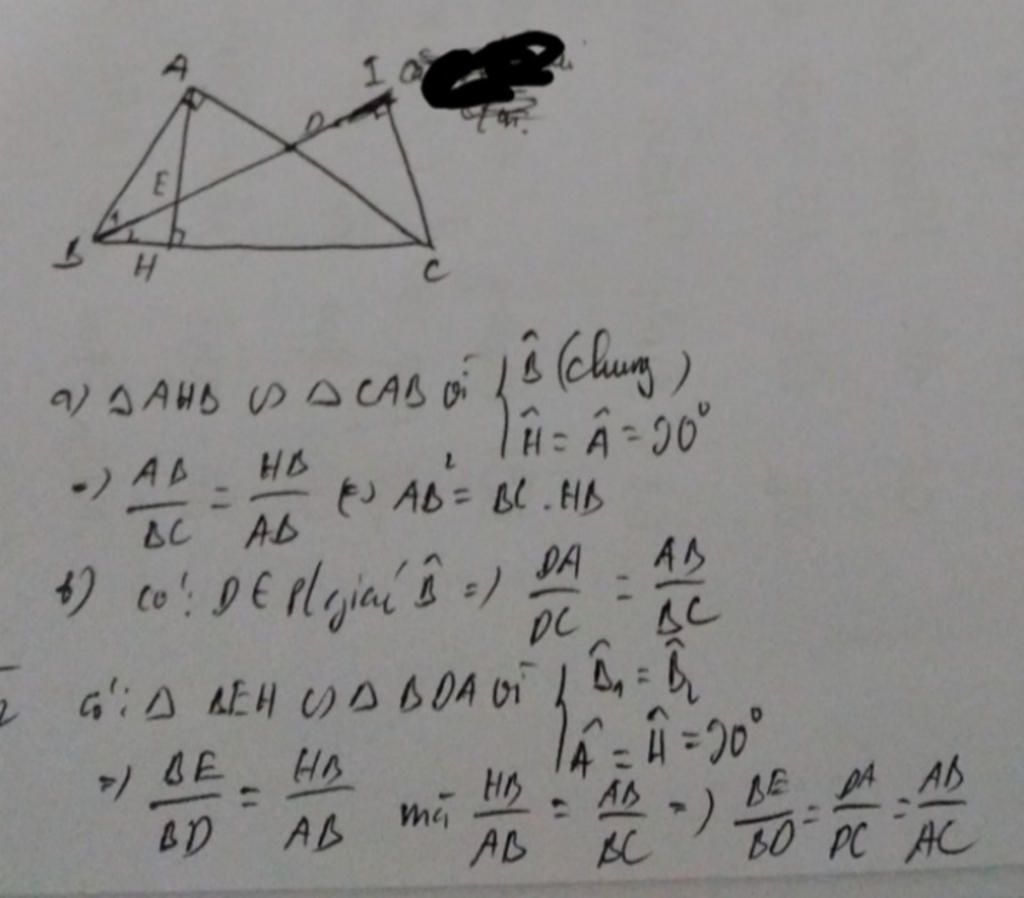 A I
D
E
1
2
B H C
a) Δ AHB ∽ Δ CAB vì { B̂ (chung)
Ĥ = Â = 90°
=) AB/BC = HB/AB (=) AB² = BC . HB
b) có: D ∈ p/giác B̂ =) DA/DC = AB/BC
có: Δ BEH ∽ Δ BDA vì { B̂₁ = B̂₂
Â = Ĥ = 90°
=) BE/BD = HB/AB mà HB/AB = AB/BC =) BE/BD = DA/DC = AB/AC